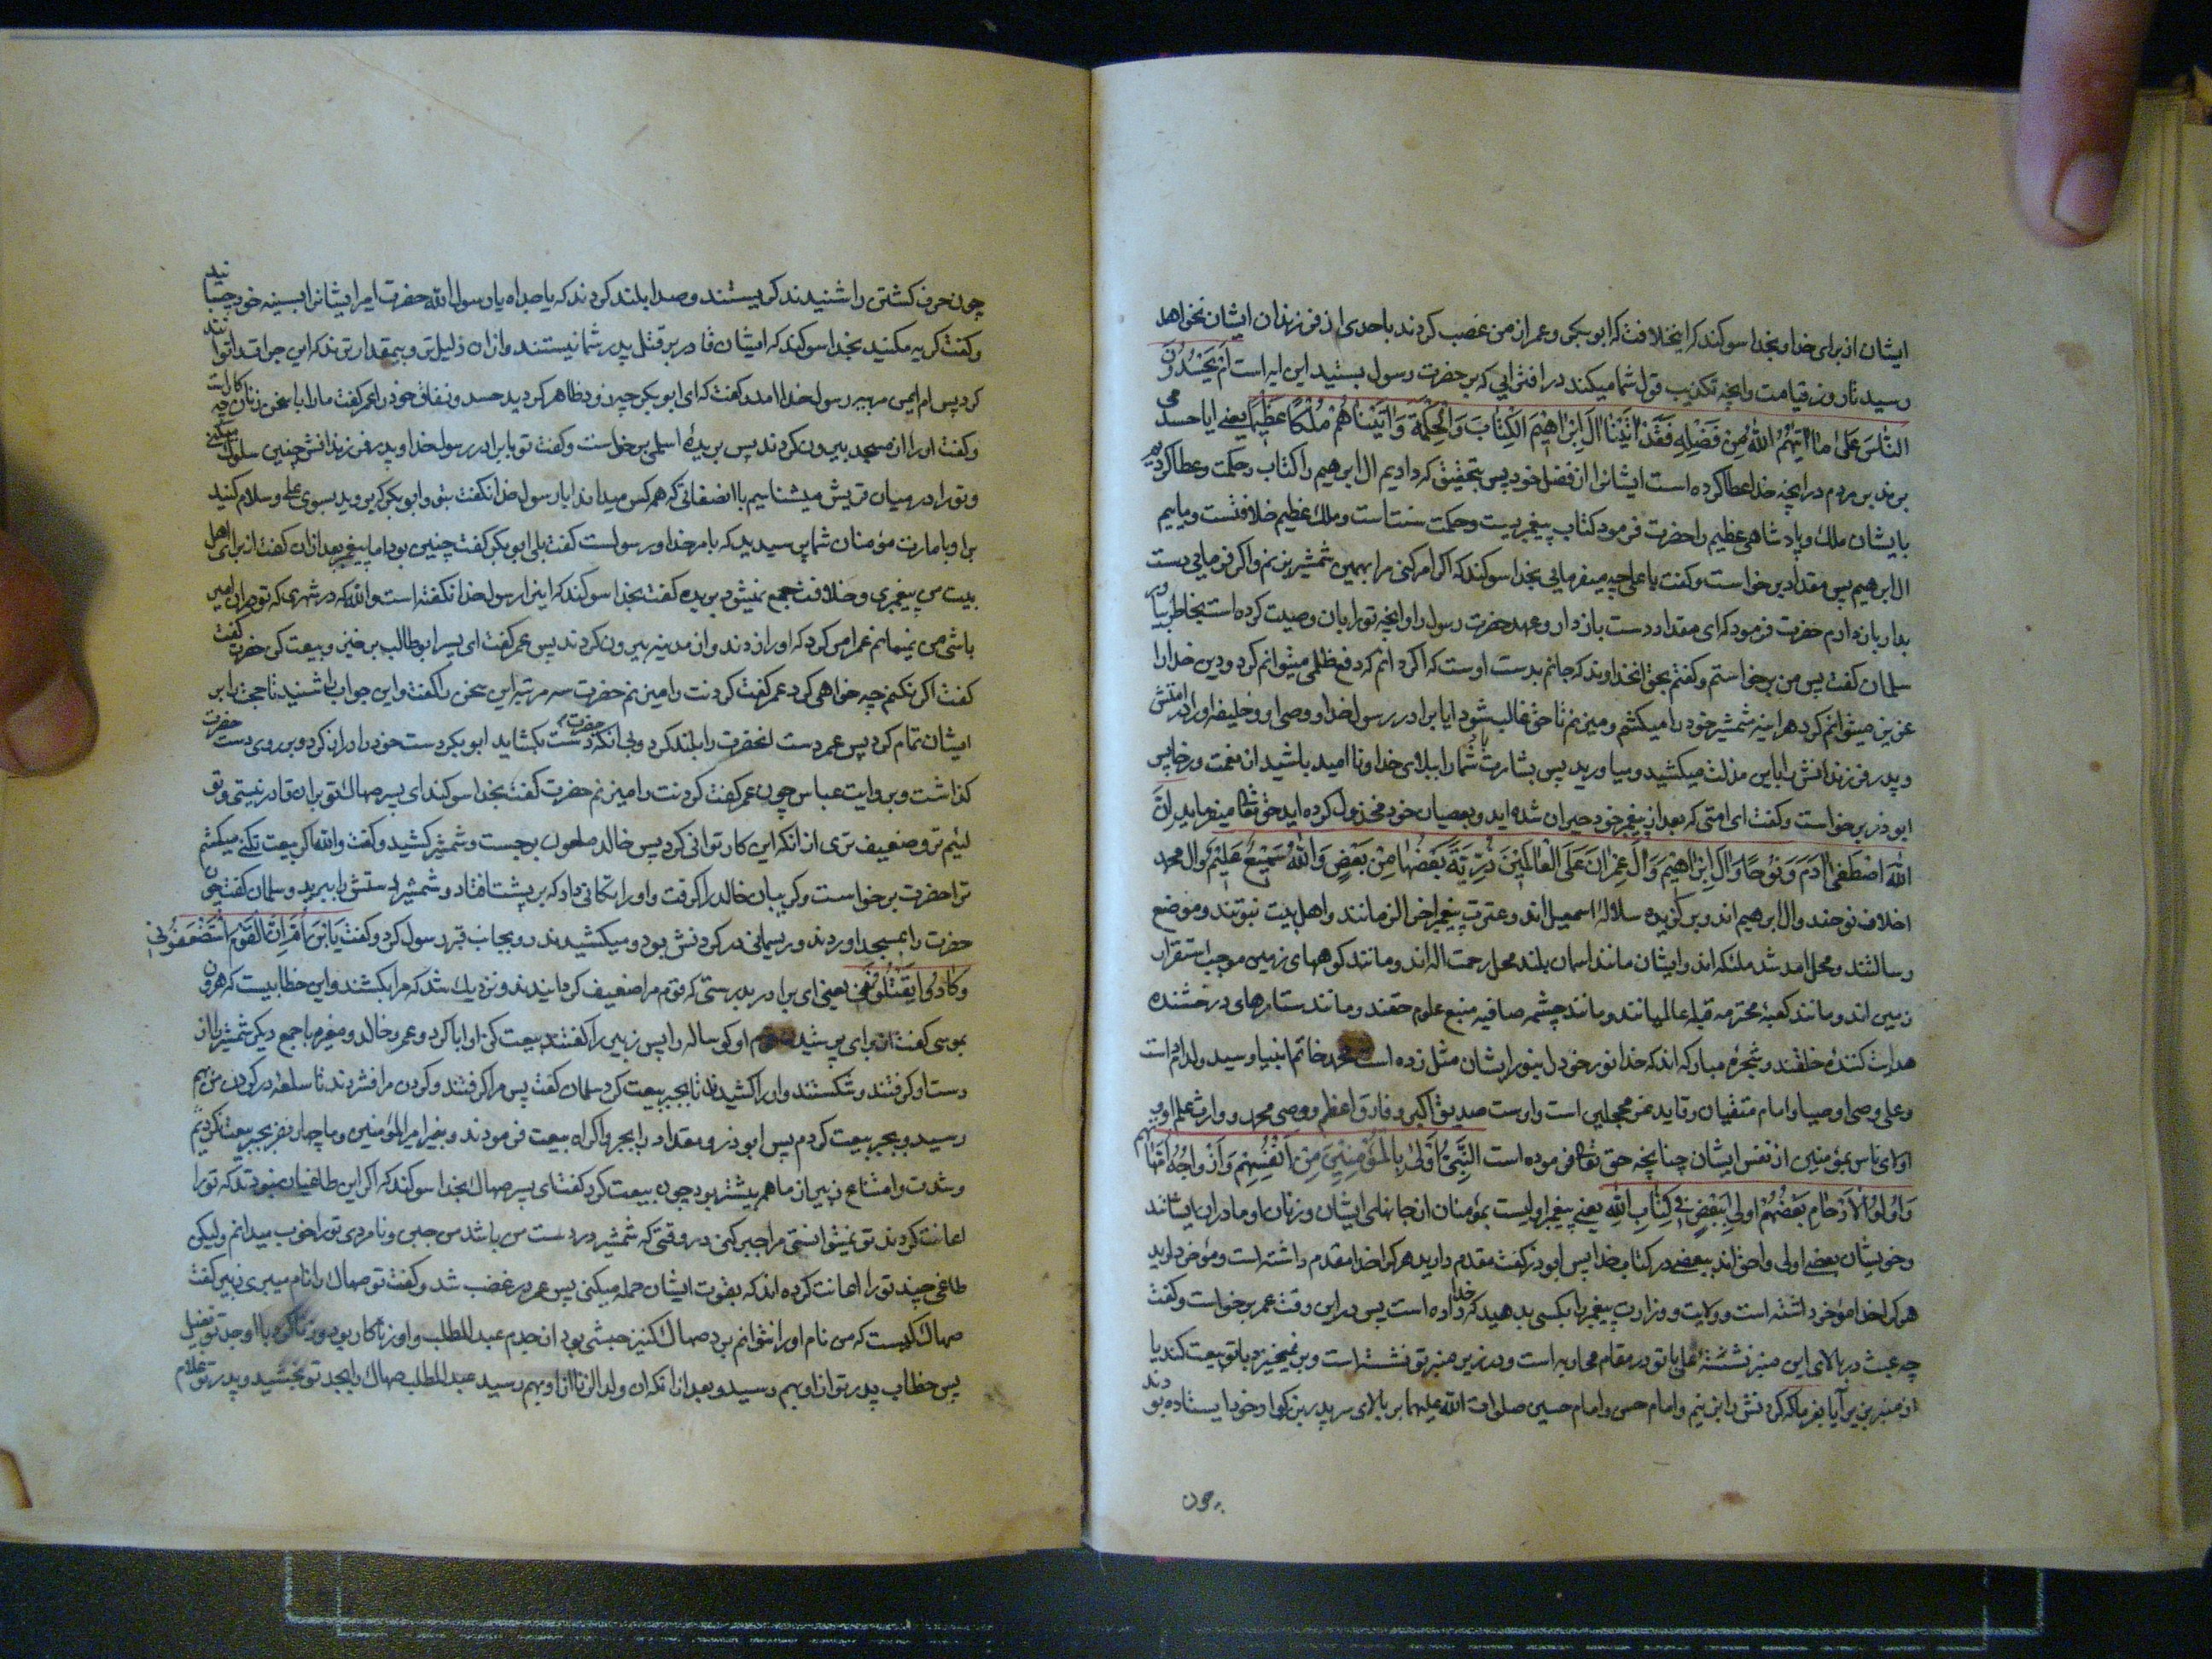 ایشان از برای خدا و بخدا سوکند که اینخلافت که ابو بکر و عمر از من غصب کردند باحدی از فرزندان ایشان نخواهد
رسید تا روز قیامت و آنچه تکذیب قول شما میکند در افترائی که بر حضرت رسول بستید این ایه است اَمْ یَحْسُدُونَ
النّاسَ عَلی ما اتیهُمُ اللهُ مِن فَضْلِهِ فَقَدْ اتَیْنا الَ اِبْراهیمَ الکِتابَ وَ الْحِکْمَةَ وَ اتَیْناهُمْ مُلْکًا عَظیمًا یعنی ایا حسد می
برند بر مردم در آنچه خدا عطا کرده است ایشانرا از فضل خود پس بتحقیق که دادیم ال ابرهیم را کتاب و حکمت و عطا کردیم
بایشان ملک و پادشاهی عظیم را حضرت فرمود کتاب پیغمبریست و حکمت سنت است و ملک عظیم خلافتست و ماییم
ال ابرهیم پس مقداد برخواست و کفت یا علی چه میفرمائی بخدا سوکند که اکر امر کنی مرا بهمین شمشیر بزنم و اکر فرمایی دست
بدارم باز دارم حضرت فرمود که ای مقداد دست باز دار و عهد حضرت رسول را و آنچه تو را بان وصیت کرده است بخاطر بیاور
سلمان کفت پس من برخواستم و کفتم بحق انخداوند که جانم بدست اوست که اکر دانم که دفع ظلمی میتوانم کرد و دین خدا را
عزیز میتوانم کرد هراینه شمشیر خود را میکشم و میزنم تا حق غالب شود ایا برادر رسول خدا و وصی او و خلیفه او را در امتش
و پدر فرزندانش را باین مذلت میکشید و میاورید پس بشارت باد شما را ببلای خدا و ناامید باشید از نعمت و رخا پس
ابوذر برخواست و کفت ای امتی که بعد از پیغمبر خود حیران شده اید و بعصیان خود مخذول کرده اید حق تعالی میفرماید اِنَّ
اللهَ اصْطَفی ادَمَ وَ نُوحًا وَ الَ اِبْراهیمَ وَ الَ عِمْرانَ عَلَی الْعالَمینَ ذُرِّیَّةً بَعْضُها مِنْ بَعْضٍ وَ اللهُ سَمیعٌ عَلیمٌ و ال محمد
اخلاف نوحند و ال ابرهیم اند و برکزیده سلاله اسمعیل اند و عترت پیغمبر اخر الزمانند و اهل بیت نبوتند و موضع
رسالتند و محل امد شد ملئکه اند و ایشان مانند اسمان بلند محل رحمت اله اند و مانند کوههای زمین موجب استقرار
زمین اند و مانند کعبه محترمه قبله عالمیانند و مانند چشمه صافیه منبع علوم حقند و مانند ستارهای درخشنده
هدایت کننده خلقند و شجره مبارکه اند که خدا نور خود را بنور ایشان مثل زده است محمد خاتم انبیا و سید ولد ادم است
و علی وصی اوصیا و امام متقیان و قاید غر محجلین است و اوست صدیق اکبر و فاروق اعظم و وصی محمد و وارث علم او و
اولای ناس بمؤمنین از نفس ایشان چنانچه حق تعالی فرموده است النَّبِیُّ اَوْلی بِالْمُؤْمِنینَ مِنْ اَنْفُسِهِمْ وَ اَزْواجُهُ اُمَّهاتُهُم
وَ اُولُو الْاَرْحامِ بَعْضُهُمْ اَوْلی بِبَعْضٍ فی کِتابِ اللهِ یعنی پیغمبر اولیست بمؤمنان از جانهای ایشان و زنان او مادران ایشانند
و خویشان بعضی اولی و احق اند ببعضی در کتاب خدا پس ابوذر کفت مقدم دارید هر که را خدا مقدم داشته است و مؤخر دارید
هر که را خدا مؤخر داشته است و ولایت و وزارت پیغمبر را بکسی بدهید که خدا داده است پس در این وقت عمر برخواست و کفت
چه عبث در بالای این منبر نشستهٔ علی با تو در مقام محاربه است و در زیر منبر تو نشسته است و بر نمیخیزد با تو بیعت کند یا
از منبر بزیر آ یا بفرما که کردنش را بزنیم و امام حسن و امام حسین صلوات الله علیهما بر بالای سر پدر بزرکوار خود ایستاده بودند
چون
چون حرف کشتن را شنیدند کریستند و صدا بلند کردند که یا جداه یا رسول الله حضرت امیر ایشانرا بسینه خود چسبانید
و کفت کریه مکنید بخدا سوکند که ایشان قادر بر قتل پدر شما نیستند و از ان ذلیل تر و بیمقدار ترند که این جرات توانند
کرد پس ام ایمن مربیه رسول خدا امد و کفت که ای ابو بکر چه زود ظاهر کردید حسد و نفاق خود را عمر کفت ما را با سخن زنان چه کار است
و کفت او را از مسجد بیرون کردند پس بریده اسلمی برخواست و کفت تو با برادر رسول خدا و پدر فرزندانش چنین سلوک میکنی
و تو را در میان قریش میشناسیم با انصفاتی که همه کس میداند ایا رسول خدا نکفت بتو و ابو بکر که بروید بسوی علی و سلام کنید
بر او بامارت مؤمنان شما پرسیدید که بامر خدا و رسولست کفت بلی ابو بکر کفت چنین بود اما پیغمبر بعد از ان کفت از برای اهل
بیت من پیغمبری و خلافت جمع نمیشود بریده کفت بخدا سوکند که اینرا رسول خدا نکفته است والله که در شهری که تو در ان امیر
باشی من نمیمانم عمر امر کرد که او را زدند و از مدینه بیرون کردند پس عمر کفت ای پسر ابو طالب برخیز و بیعت کن حضرت کفت
کفت اکر نکنم چه خواهی کرد عمر کفت کردنت را میزنم حضرت سه مرتبه این سخن را کفت و این جواب را شنید تا حجت را بر
ایشان تمام کرد پس عمر دست انحضرت را بلند کرد و بی انکه حضرت دست بکشاید ابو بکر دست خود را دراز کرد و بر روی دست حضرت
کذاشت و بروایت عباس چون عمر کفت کردنت را میزنم حضرت کفت بخدا سوکند ای پسر صهاک تو بر ان قادر نیستی و تو
لئیم تر و ضعیف تری از انکه این کار توانی کرد پس خالد ملعون برجست و شمشیر کشید و کفت والله اکر بیعت نکنی میکشم
ترا حضرت برخواست و کریبان خالد را کرفت و او را تکانی داد که بر پشت افتاد و شمشیر از دستش پرید و سلمان کفت چون
حضرت را بمسجد اوردند و ریسمانی در کردنش بود و میکشیدند رو بجانب قبر رسول کرد و کفت یَا ابْنَ اُمَّ اِنَّ الْقَوْمَ اسْتَضْعَفُونی
وَ کادُوا یَقْتُلُونَنی یعنی ای برادر بدرستی که قوم مرا ضعیف کردانیدند و نزدیک شد که مرا بکشند و این خطابیست که هرون
بموسی کفت از برای پرستیدن قوم او کوساله را پس زبیر را کفتند بیعت کن او ابا کرد و عمر و خالد و مغیره با جمع دیکر شمشیر را از
دست او کرفتند و شکستند و او را کشیدند تا بجبر بیعت کرد سلمان کفت پس مرا کرفتند و کردن مرا فشردند تا سلعه در کردن من بهم
رسید و بجبر بیعت کردم پس ابوذر و مقداد را بجبر و اکراه بیعت فرمودند و بغیر امیر المؤمنین و ما چهار نفر بجبر بیعت نکردیم
و شدت و امتناع زبیر از ما هم بیشتر بود چون بیعت کرد کفت ای پسر صهاک بخدا سوکند که اکر این طاغیان نبودند که تو را
اعانت کردند تو نمیتوانستی مرا جبر کنی در وقتی که شمشیر در دست من باشد من جبن و نامردی تو را خوب میدانم و لیکن
طاغی چند تو را اعانت کرده اند که بقوت ایشان حمله میکنی پس عمر در غضب شد و کفت تو صهاک را نام میبری زبیر کفت
صهاک کیست که من نام او را نتوانم برد صهاک کنیز حبشی بود از جدم عبد المطلب و او زناکار بود و زنا کرد با او جد تو نفیل
پس خطاب پدر تو از او بهم رسید و بعد از انکه ان ولد الزنا از او بهم رسید عبد المطلب صهاک را بجد تو بخشید و پدر تو غلام